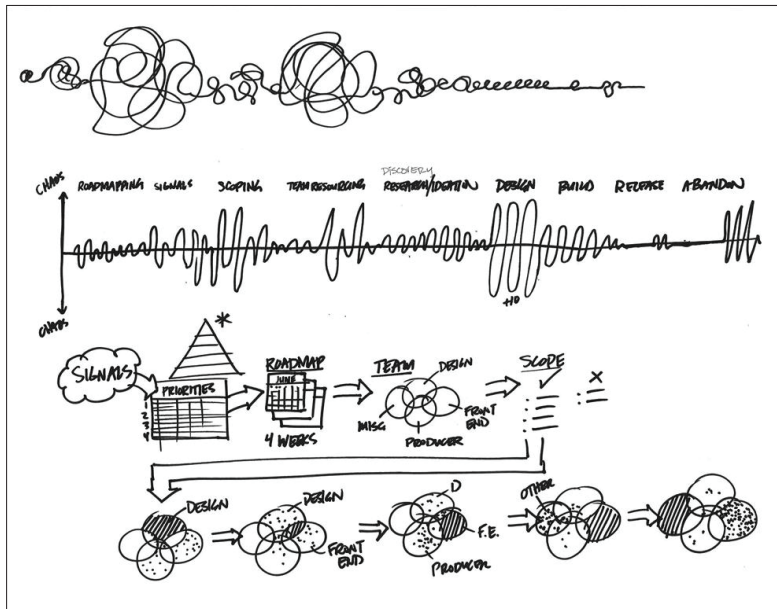 DISCOVERY
CHAOS
ROADMAPPING SIGNALS SCOPING TEAM RESOURCING RESEARCH/IDEATION DESIGN BUILD RELEASE ABANDON
+10
CHAOS
*
SIGNALS
PRIORITIES
1
2
3
4
ROADMAP
JUNE
4 WEEKS
TEAM
DESIGN
MISC
FRONT
END
PRODUCER
SCOPE
DESIGN
DESIGN
FRONT
END
D
F.E.
PRODUCER
OTHER